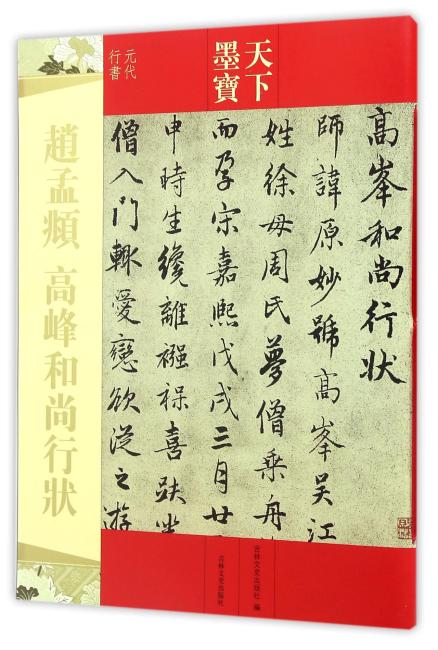 天下
墨寶
元代
行書
趙孟頫 高峰和尚行狀
高峯和尚行状
師諱原妙號高峯吳江
姓徐母周氏夢僧乗舟
而孕宋嘉熙戊戌三月廿
申時生纔離襁褓喜趺坐
僧入門輙愛戀欲从之游
吉林文史出版社 編
吉林文史出版社